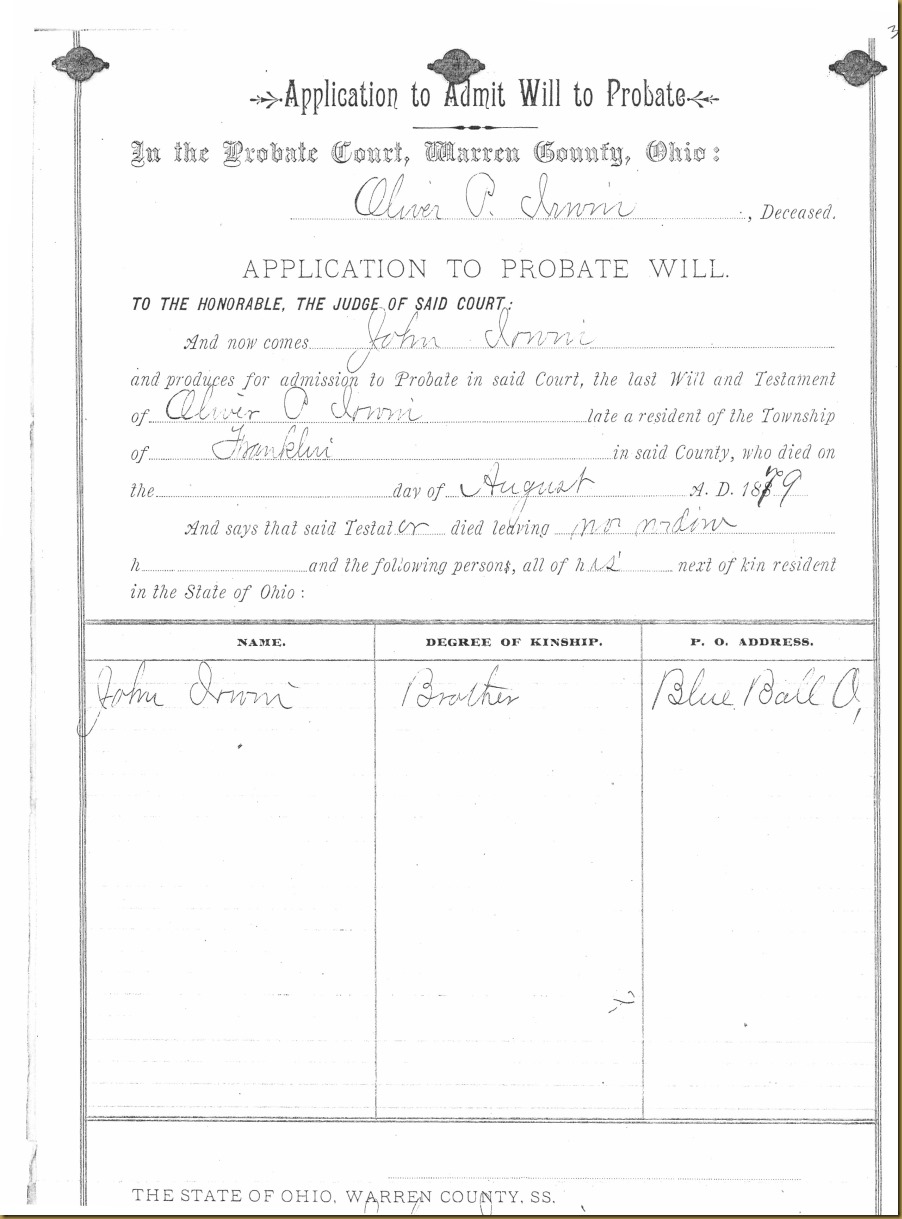 3
Application to Admit Will to Probate
In the Probate Court, Warren County, Ohio:
Oliver P. Irwin, Deceased.
APPLICATION TO PROBATE WILL.
TO THE HONORABLE, THE JUDGE OF SAID COURT:
And now comes John Irwin
and produces for admission to Probate in said Court, the last Will and Testament
of Oliver P Irwin late a resident of the Township
of Franklin in said County, who died on
the day of August A. D. 1879
And says that said Testator died leaving no widow
h and the following persons, all of his next of kin resident
in the State of Ohio:
NAME. DEGREE OF KINSHIP. P. O. ADDRESS.
John Irwin Brother Blue Ball O,
THE STATE OF OHIO, WARREN COUNTY, SS.